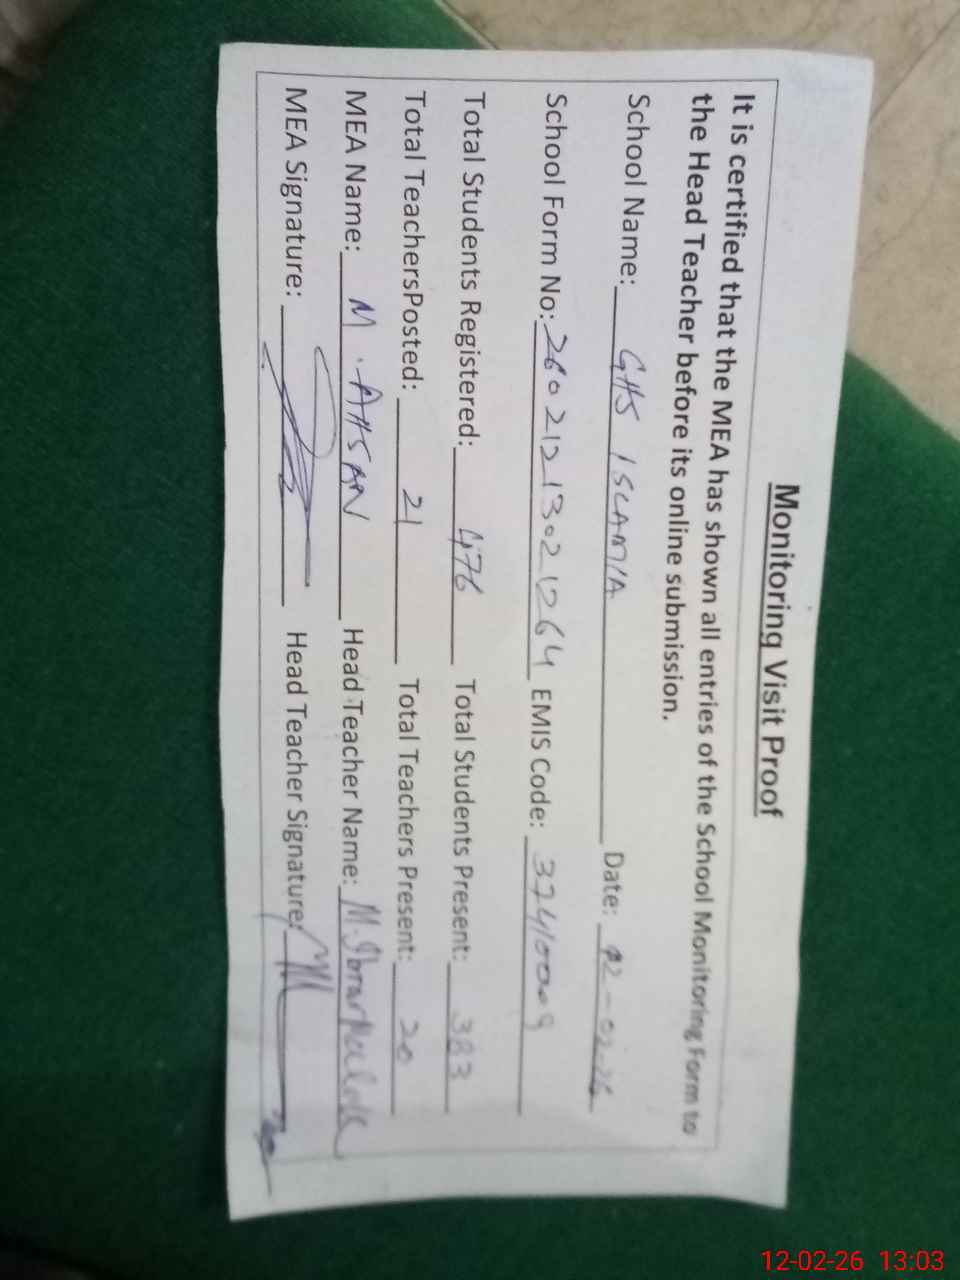 Monitoring Visit Proof
It is certified that the MEA has shown all entries of the School Monitoring Form to
the Head Teacher before its online submission.
School Name: GHS ISCAMIA Date: 12-02-26
School Form No: 26021213021264 EMIS Code: 37410009
Total Students Registered: 476 Total Students Present: 383
Total TeachersPosted: 21 Total Teachers Present: 20
MEA Name: M. AHSAN Head Teacher Name: M.
MEA Signature: Head Teacher Signature:
12-02-26 13:03